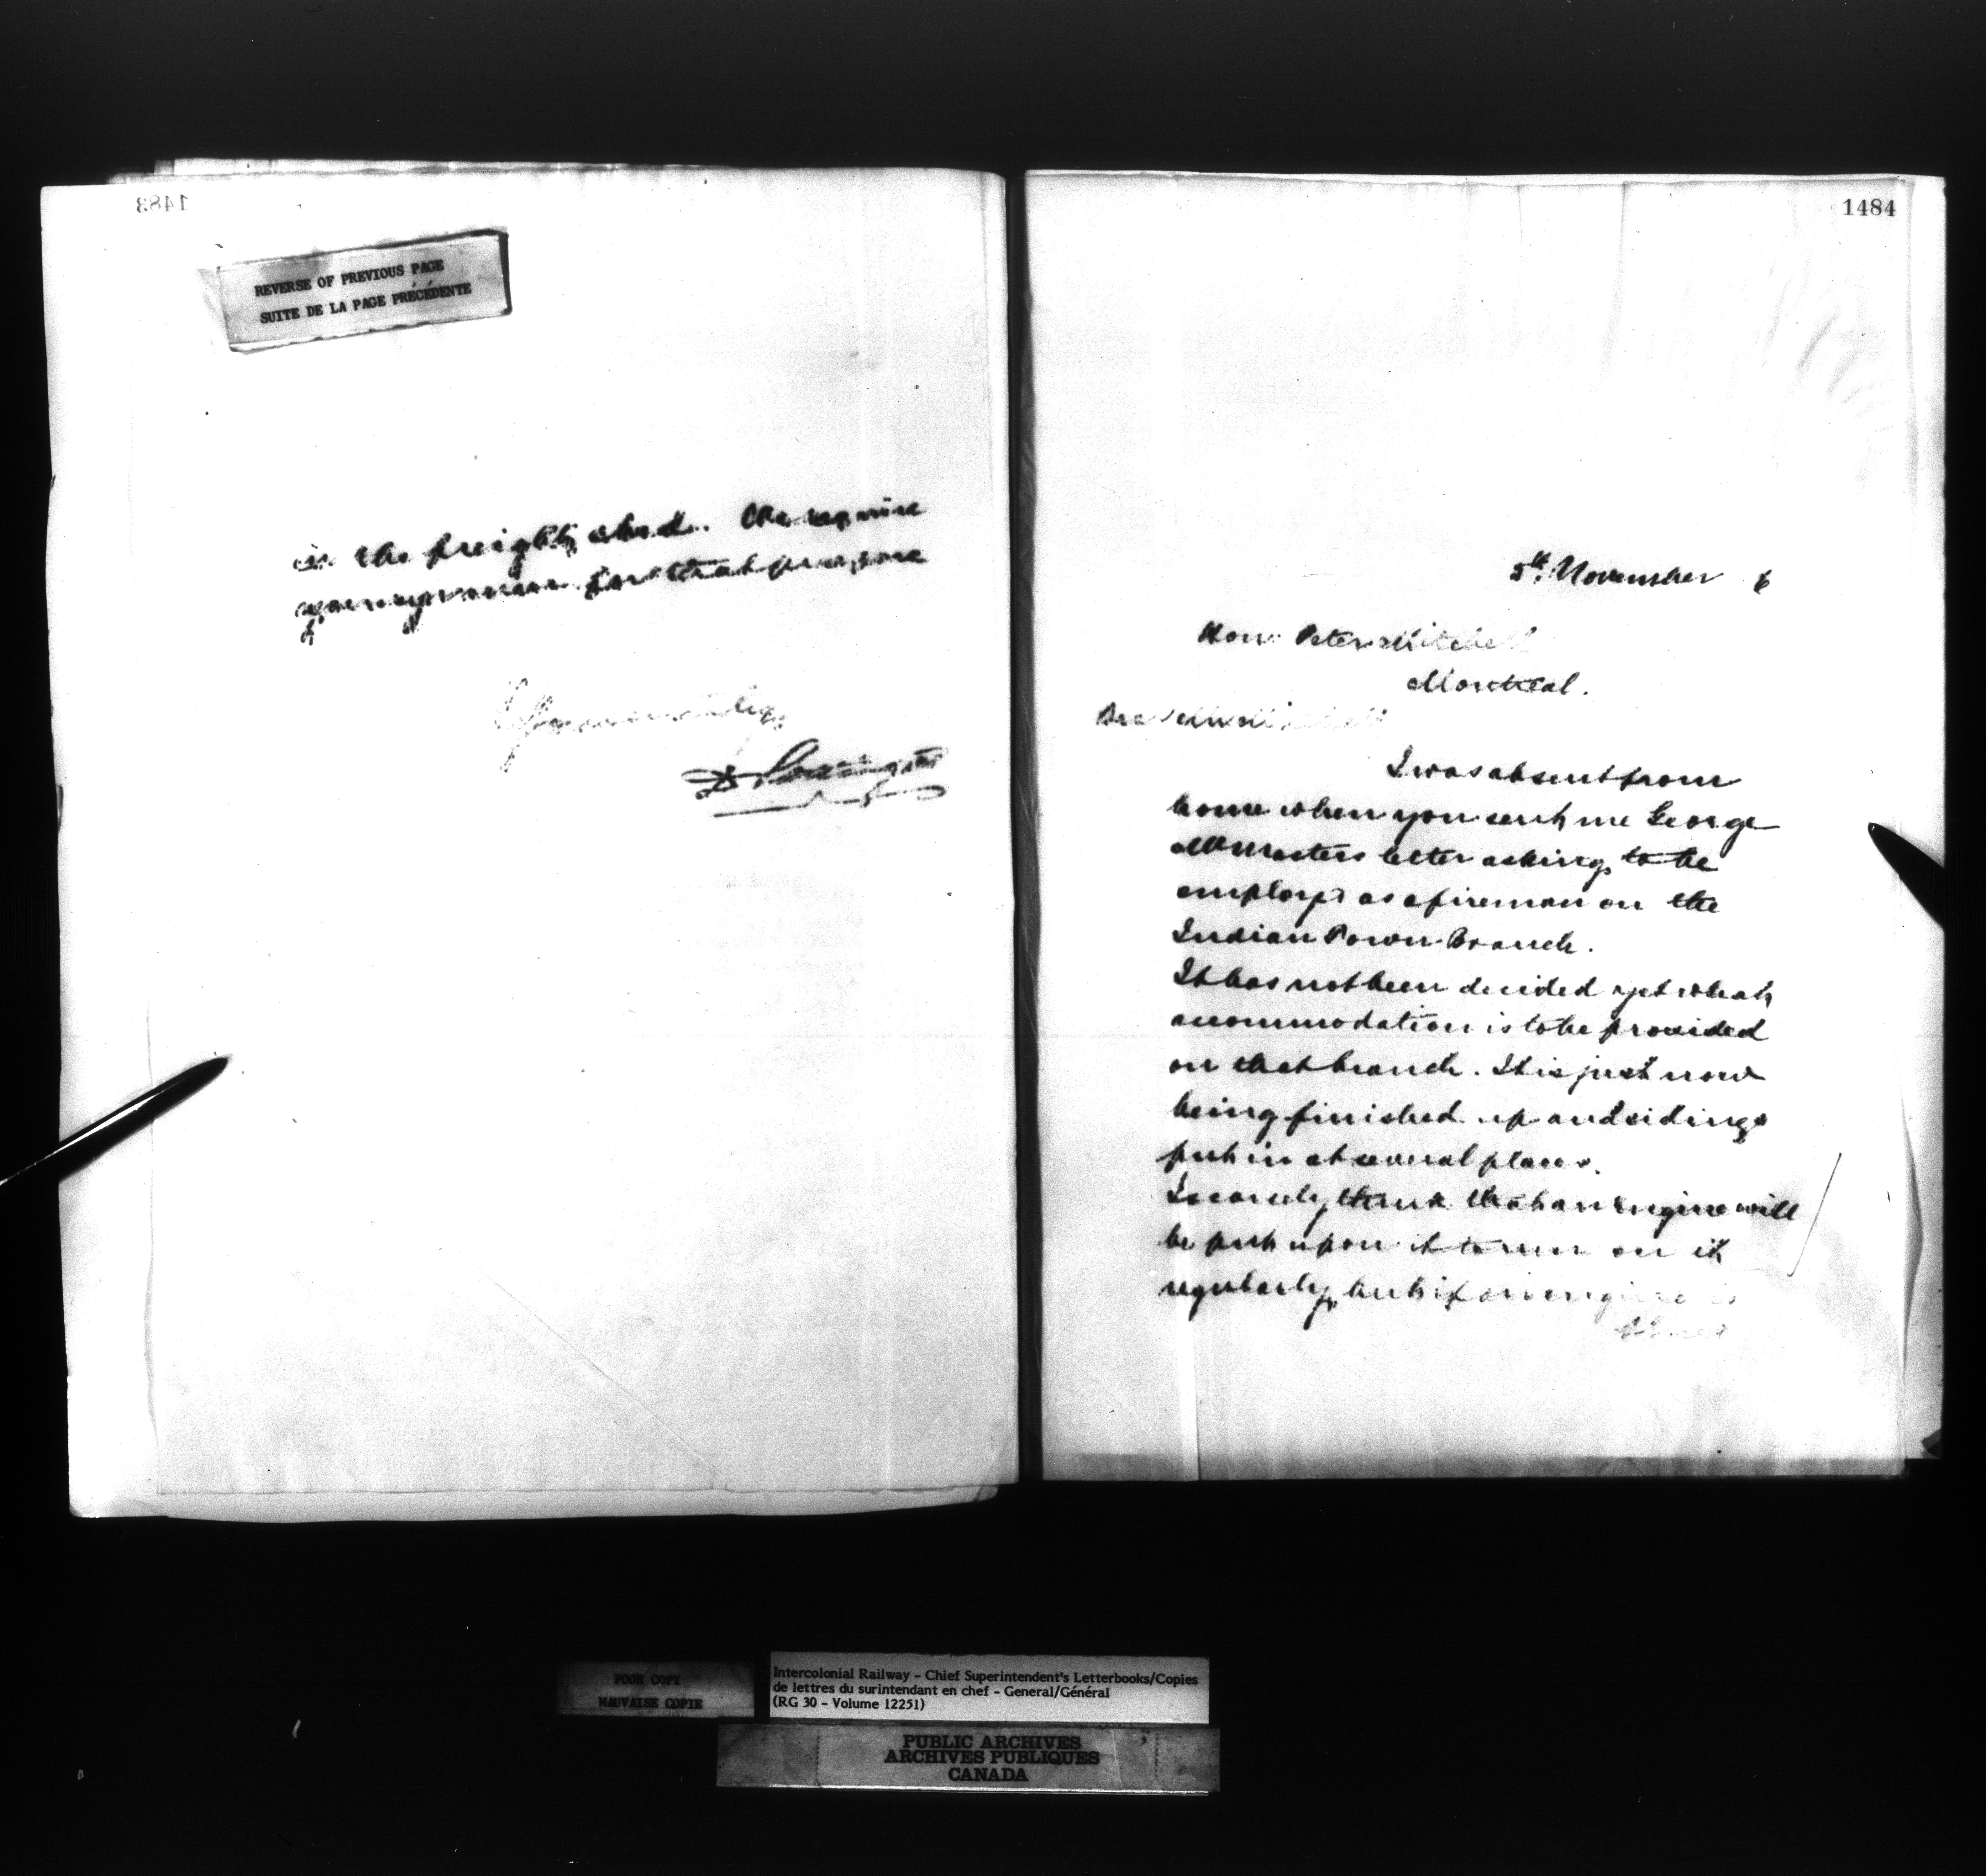 1483
REVERSE OF PREVIOUS PAGE
SUITE DE LA PAGE PRÉCÉDENTE
in the freight shed. We require
for that purpose
Yours truly
1484
5th November 6
Hon. Peter Mitchell
Montreal.
Dear Mr Mitchell
I was absent from
home when you sent me George
McMasters letter asking to be
employed as a fireman on the
Indian Town Branch.
It has not been decided yet what
accommodation is to be provided
on that branch. It is just now
being finished up and sidings
put in at several places.
I scarcely think that an engine will
be put upon it to run on it
regularly, but if an engine is
POOR COPY
MAUVAISE COPIE
Intercolonial Railway - Chief Superintendent's Letterbooks/Copies
de lettres du surintendant en chef - General/Général
(RG 30 - Volume 12251)
PUBLIC ARCHIVES
ARCHIVES PUBLIQUES
CANADA